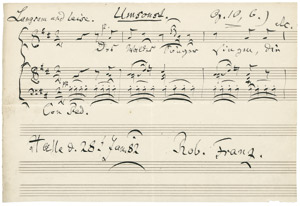 Langsam und leise. Umsonst. Op. 10, 6.)
etc.
Des Waldes Sänger singen, die
Con Ped.
Halle d. 28st Jan. 82 Rob. Franz.